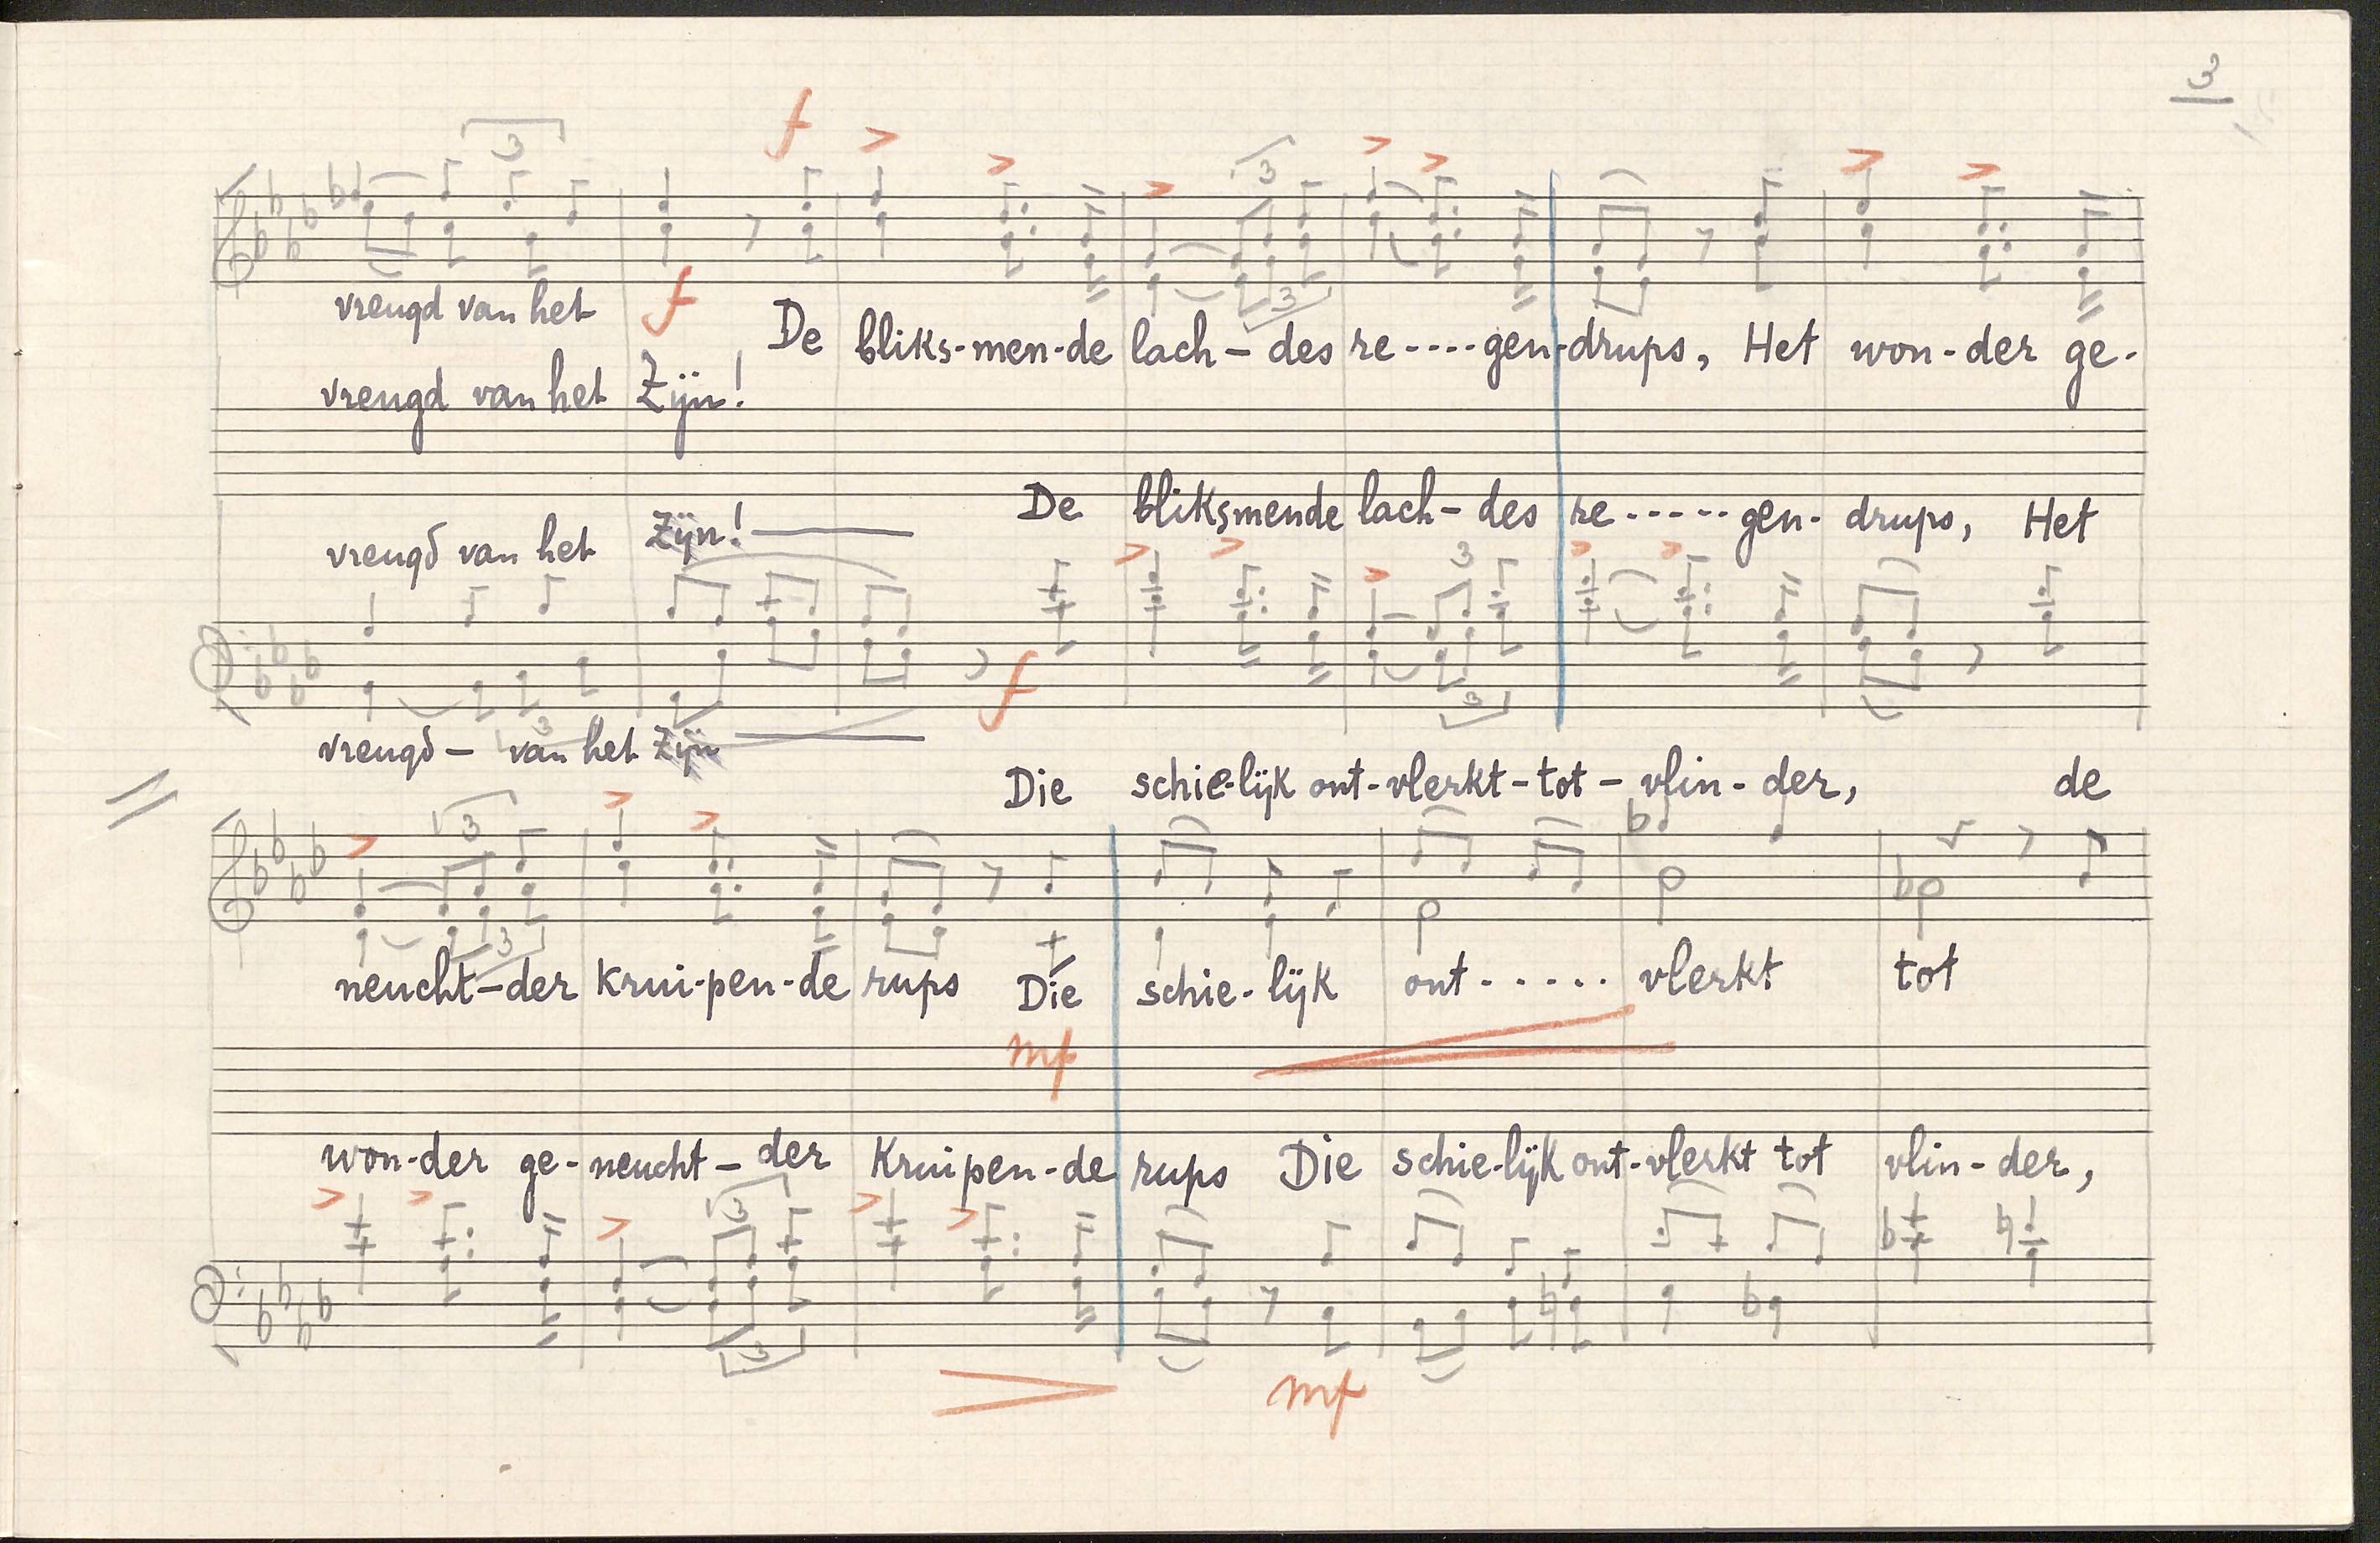 3
f
3
vreugd van het f De bliks-men-de lach-des re----gen-drups, Het won-der ge-
3
vreugd van het Zijn!
De bliksmende lach-des re-----gen-drups, Het
vreugd van het Zijn!
3
f
3
vreugd- van het Zijn
3
Die schie-lijk ont-vlerkt-tot-vlin-der, de
3
3
neucht-der krui-pen-de rups Die schie-lijk ont----- vlerkt tot
mf
won-der ge-neucht-der Kruipen-de rups Die schie-lijk ont-vlerkt tot vlin-der,
3
3
mf